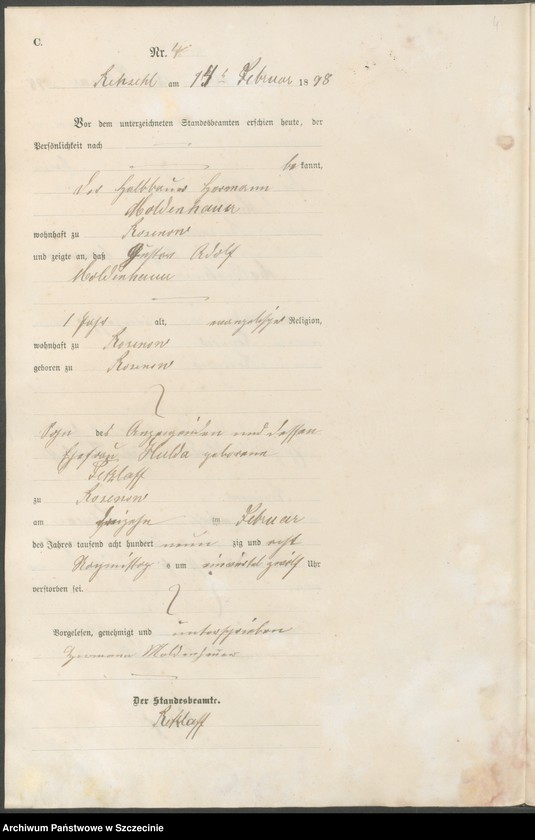 C.
Nr. 4
am 14t Februar 1898
Vor dem unterzeichneten Standesbeamten erschien heute, der
Persönlichkeit nach
be kannt,
der Halbbauer Hermann
Moldenhauer
wohnhaft zu Rosenow
und zeigte an, daß Gustav Adolf
Moldenhauer
1 Jahr alt, evangelischer Religion,
wohnhaft zu Rosenow
geboren zu Rosenow
Sohn des Anzeigenden und dessen
Ehefrau Hulda geborene
Retzlaff
zu Rosenow
am Februar
des Jahres tausend acht hundert neun zig und acht
Nachmittags um einviertel zwölf Uhr
verstorben sei.
Vorgelesen, genehmigt und unterschrieben
Hermann Moldenhauer
Der Standesbeamte.
Retzlaff
Archiwum Państwowe w Szczecinie